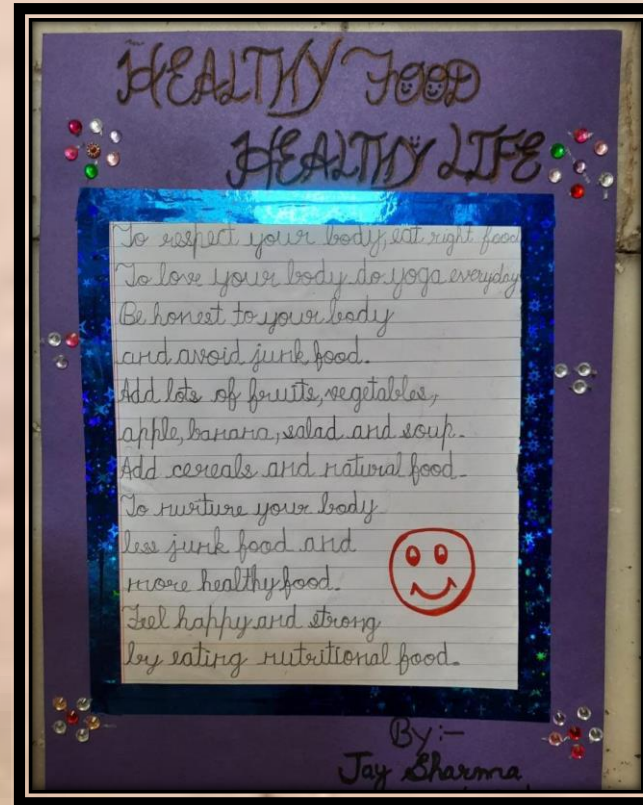 HEALTHY FOOD
HEALTHY LIFE
To respect your body, eat right food
To love your body do yoga everyday
Be honest to your body
and avoid junk food.
Add lots of fruits, vegetables,
apple, banana, salad and soup.
Add cereals and natural food.
To nurture your body
less junk food and
more healthy food.
Feel happy and strong
by eating nutritional food.
By :-
Jay Sharma